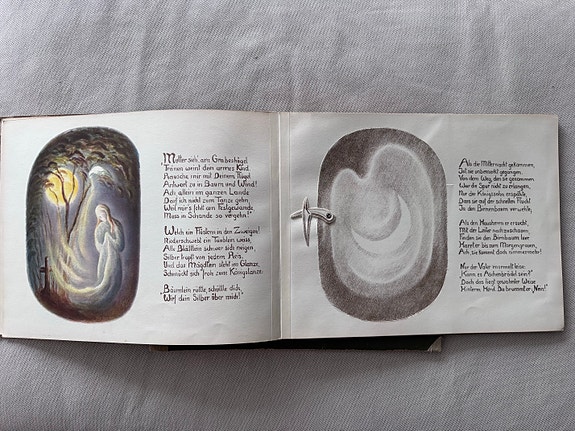 „Mutter sieh, am Grabeshügel
Tränen weint dein armes Kind.
Rausche mir mit Deinem Flügel
Antwort zu in Baum und Wind!
Ach allein im ganzen Lande
Darf ich nicht zum Tanze gehn
Weil mir's fehlt am Festgewande,
Muss in Schande so vergehn!“
Welch ein Flüstern in den Zweigen!
Niederschwebt ein Täublein weiss,
Alle Blättlein schwer sich neigen,
Silber tropft von jedem Reis.
Und das Mägdlein steht im Glanze,
Schmückt sich froh zum Königstanze.
Bäumlein rüttle, schüttle dich,
Wirf dein Silber über mich!“
Als die Mitternacht gekommen,
Ist sie unbemerkt gegangen.
Von dem Weg, den sie genommen
War die Spur nicht zu erlangen,
Nur der Königsohn erspähte,
Dass sie auf der schnellen Flucht
In den Birnenbaum verwehte,
Als den Hausherrn er ersucht,
Mit der Leiter nachzuschauen,
Finden sie den Birnbaum leer
Harrt er bis zum Morgengrauen,
Ach, sie kommt doch nimmermehr!
Nur der Vater murmelt leise:
„Kann es Aschenbrödel sein?“
Doch das liegt gewohnter Weise
Hinterm Herd. Da brummt er: „Nein!“